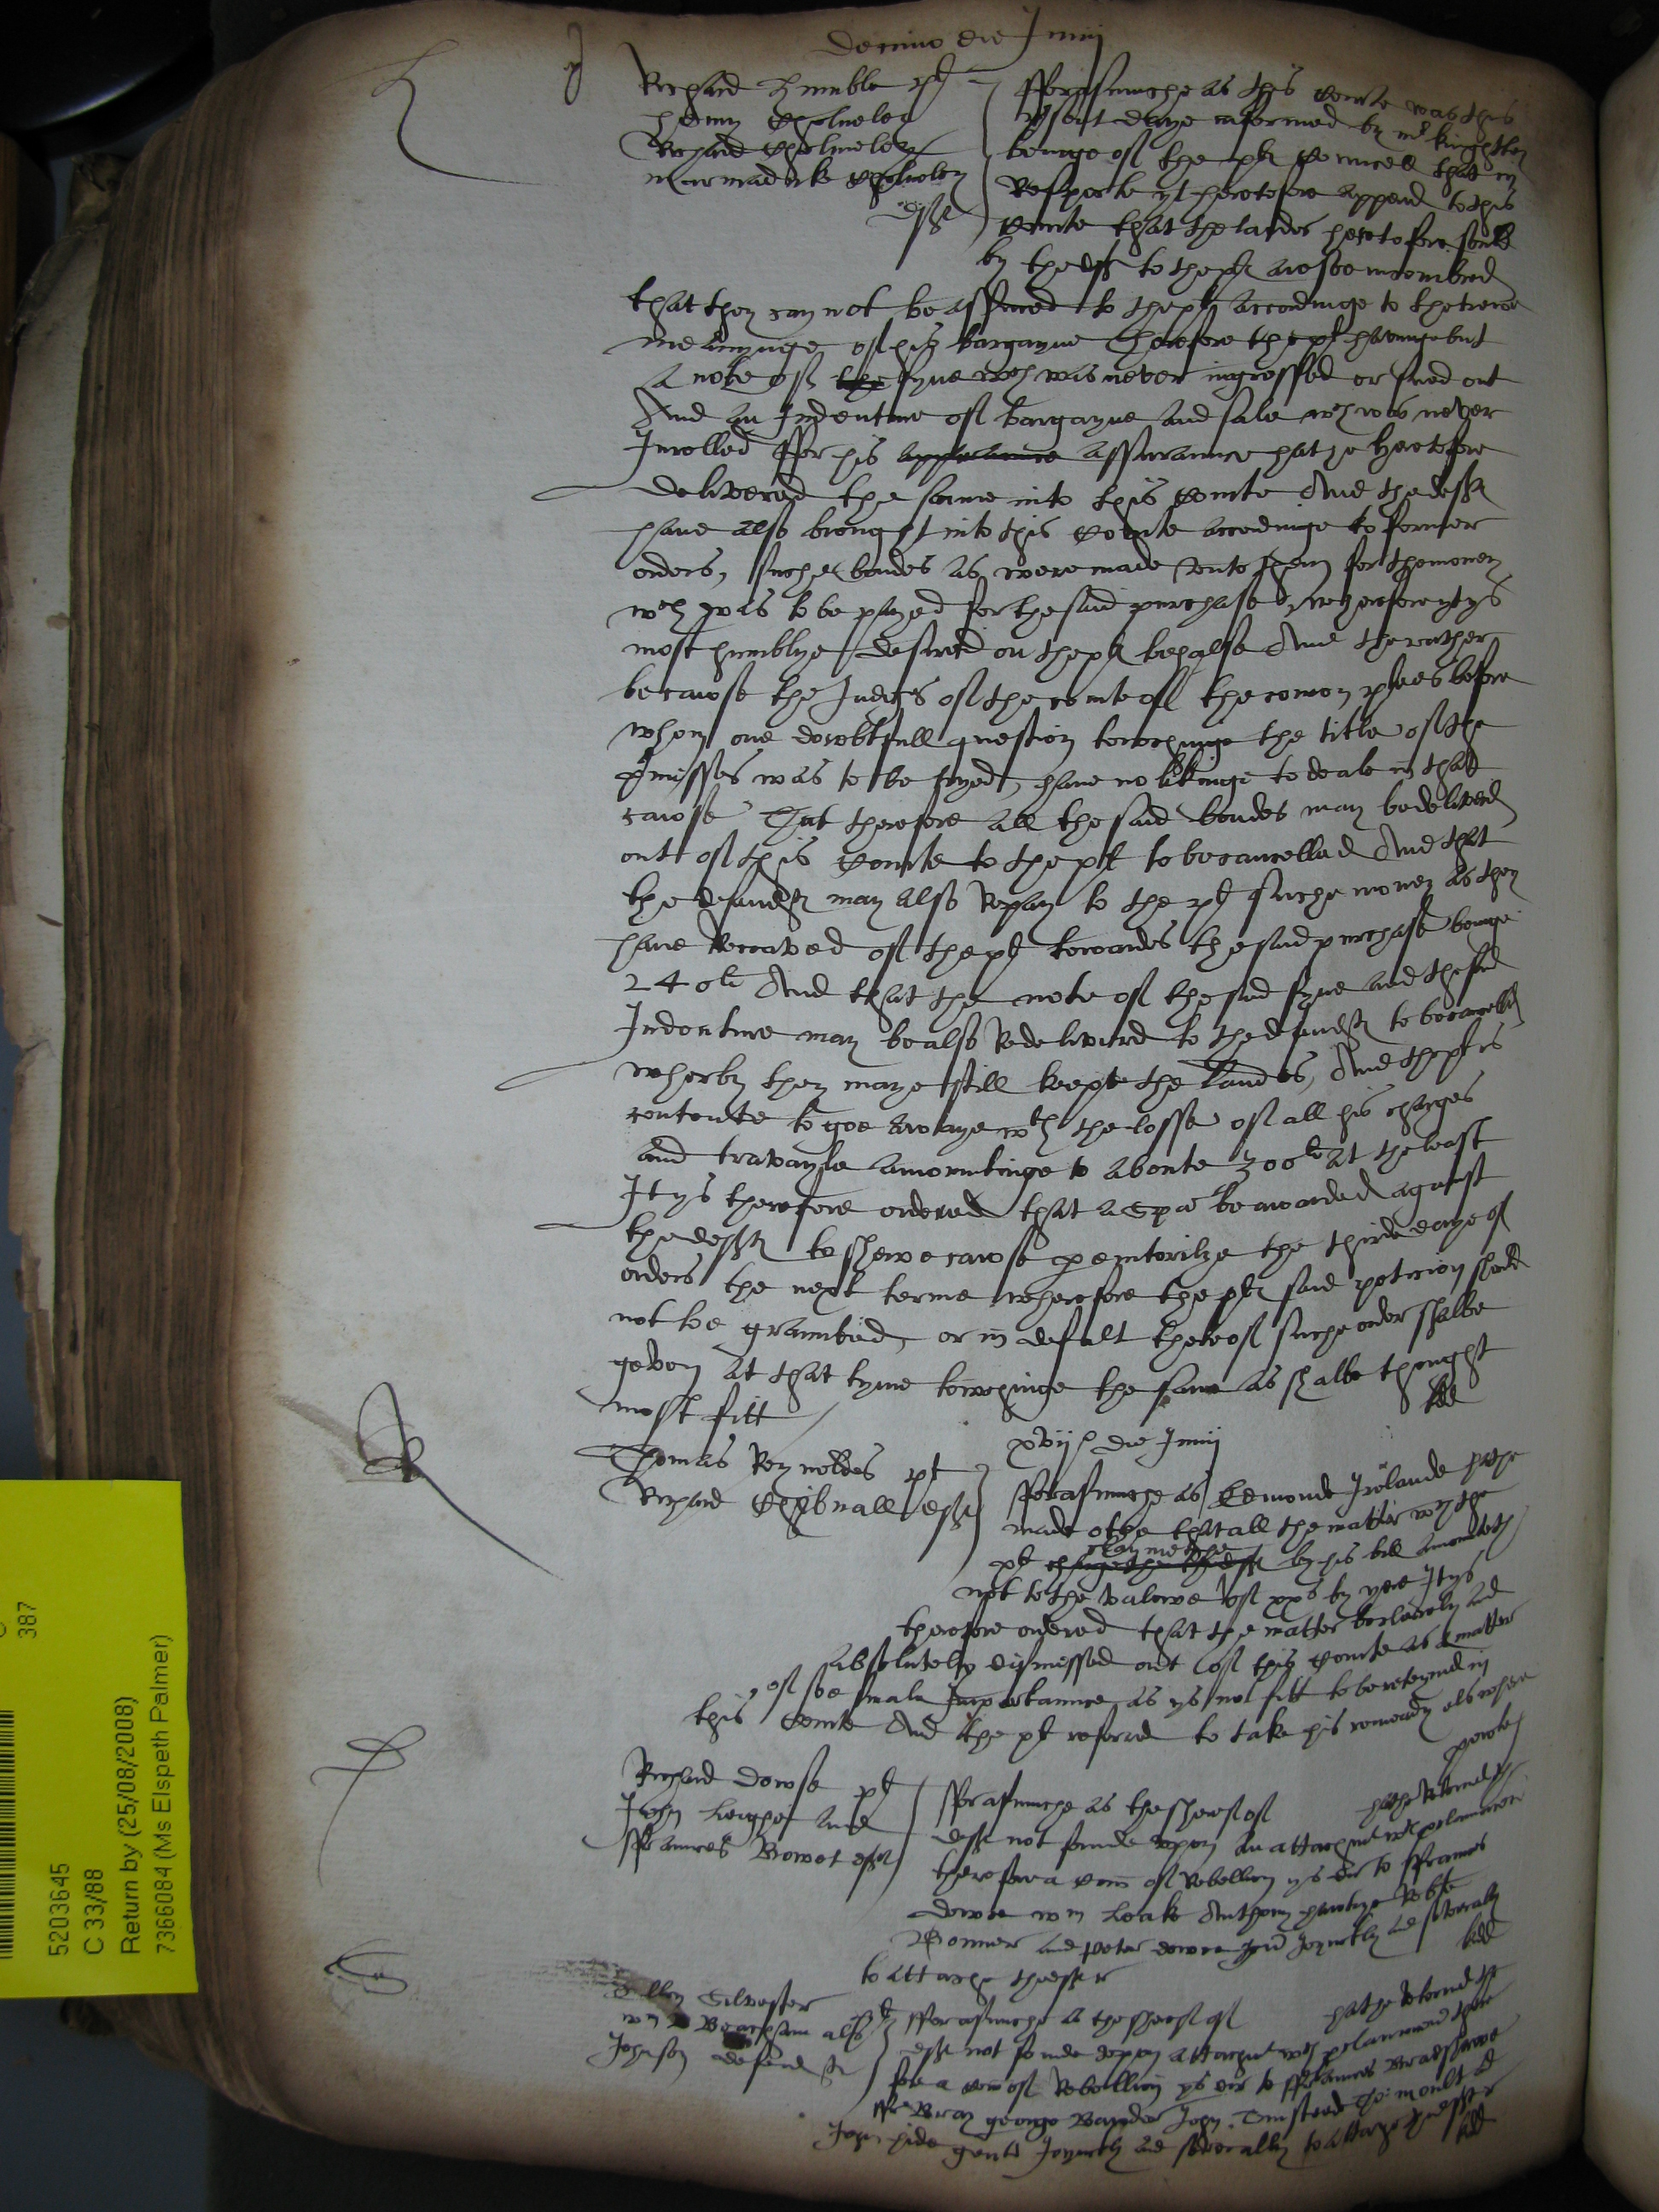 decimo die Junij
Richard Humble pl
Henry Cholmeley
Richard Cholmeley
Marmaduke Cholmeley
defts
fforasmuche as this Courte was this
present daye informed by mr knightley
beinge of the pl Councell that
Respecte yt heretofore appeared to this
Courte that the landes heretofore soulde
by the deft to the pl are soe incombred
that they can not be assured to the pl accordinge to the trewe
meaninge of his bargayne Therefore the pl havinge but
a note of the fyne wch was never ingrossed or sued out
And an Indenture of bargayne and sale wch was never
Inrolled ffor his apparaunce assuraunce hathe heretofore
delivered the same into this Courte And the deftes
have also brought into this Courte accordinge to former
orders, suche bondes as were made unto them for the money
wch was to be payed for the said purchase wherefore yt ys
most humblye desired on the pl behalfe And the rather
because the Judges of the courte of the comon plees before
whom one doubtfull question towchinge the title of the
pmisses was to be tryed, have no likinge to deale in that
cause That therefore all the said bondes may be delivered
out of this Courte to the pl to be cancelled And that
the defendtes may also Repay to the pl suche money as they
have Receaved of the pl towardes the said purchase beinge
240li And that the note of the said fyne and the said
Indenture may be also Redelivered to the defendtes to be cancelled
wherby they maye still keepe the Landes, And the pl is
contente to goe awaye wth the losse of all his charges
and travayle amountinge to aboute 300li at the least
It ys therefore ordered that a Spa be awarded against
the deftes to shewe cause peremtorilye the third daye of
orders the next terme wherefore the pl said peticion should
not be graunted, or in defalt thereof suche order shalbe
geven at that tyme towchinge the same as shalbe thought
most fitt
xvijo die Junij
Thomas Reynoldes pl
Richard Chibnall deft
fforasmuche as Edmonde Irelande hathe
made othe that all the matter wch the
pl chargethe the deft claymethe by his bill amounteth
not to the valewe of xxs by yere It ys
therefore ordered that the matter be clerely and
absolutely dismissed out of this Courte as a matter
of soe smale Importaunce as ys not fitt to be reteyned in
this Courte And the pl referred to take his remedy els where
Richard Dowse pl
John and
ffraunces Browet defts
fforasmuche as the sheref of hathe Retorned the
deft not founde upon an attachmt wth proclamacion
therefore a Com of Rebellion ys dir to ffraunces
dowce wm Leake Anthony Robte
and Peter dowce Joyntly and severally
to attache the deftes
Silvester
wm Beacham als
Johnson defendt
fforasmuche as the sheref of hathe Retorned the
deft not founde upon attachmt wth proclamacion there
fore a Com of Rebellion ys dir to ffraunces Bradshawe
Bray George John and
John hide gents Joyntly and severally to attache the deftes
387
5203645
C 33/88
Return by (25/08/2008)
7366084 (Ms Elspeth Palmer)